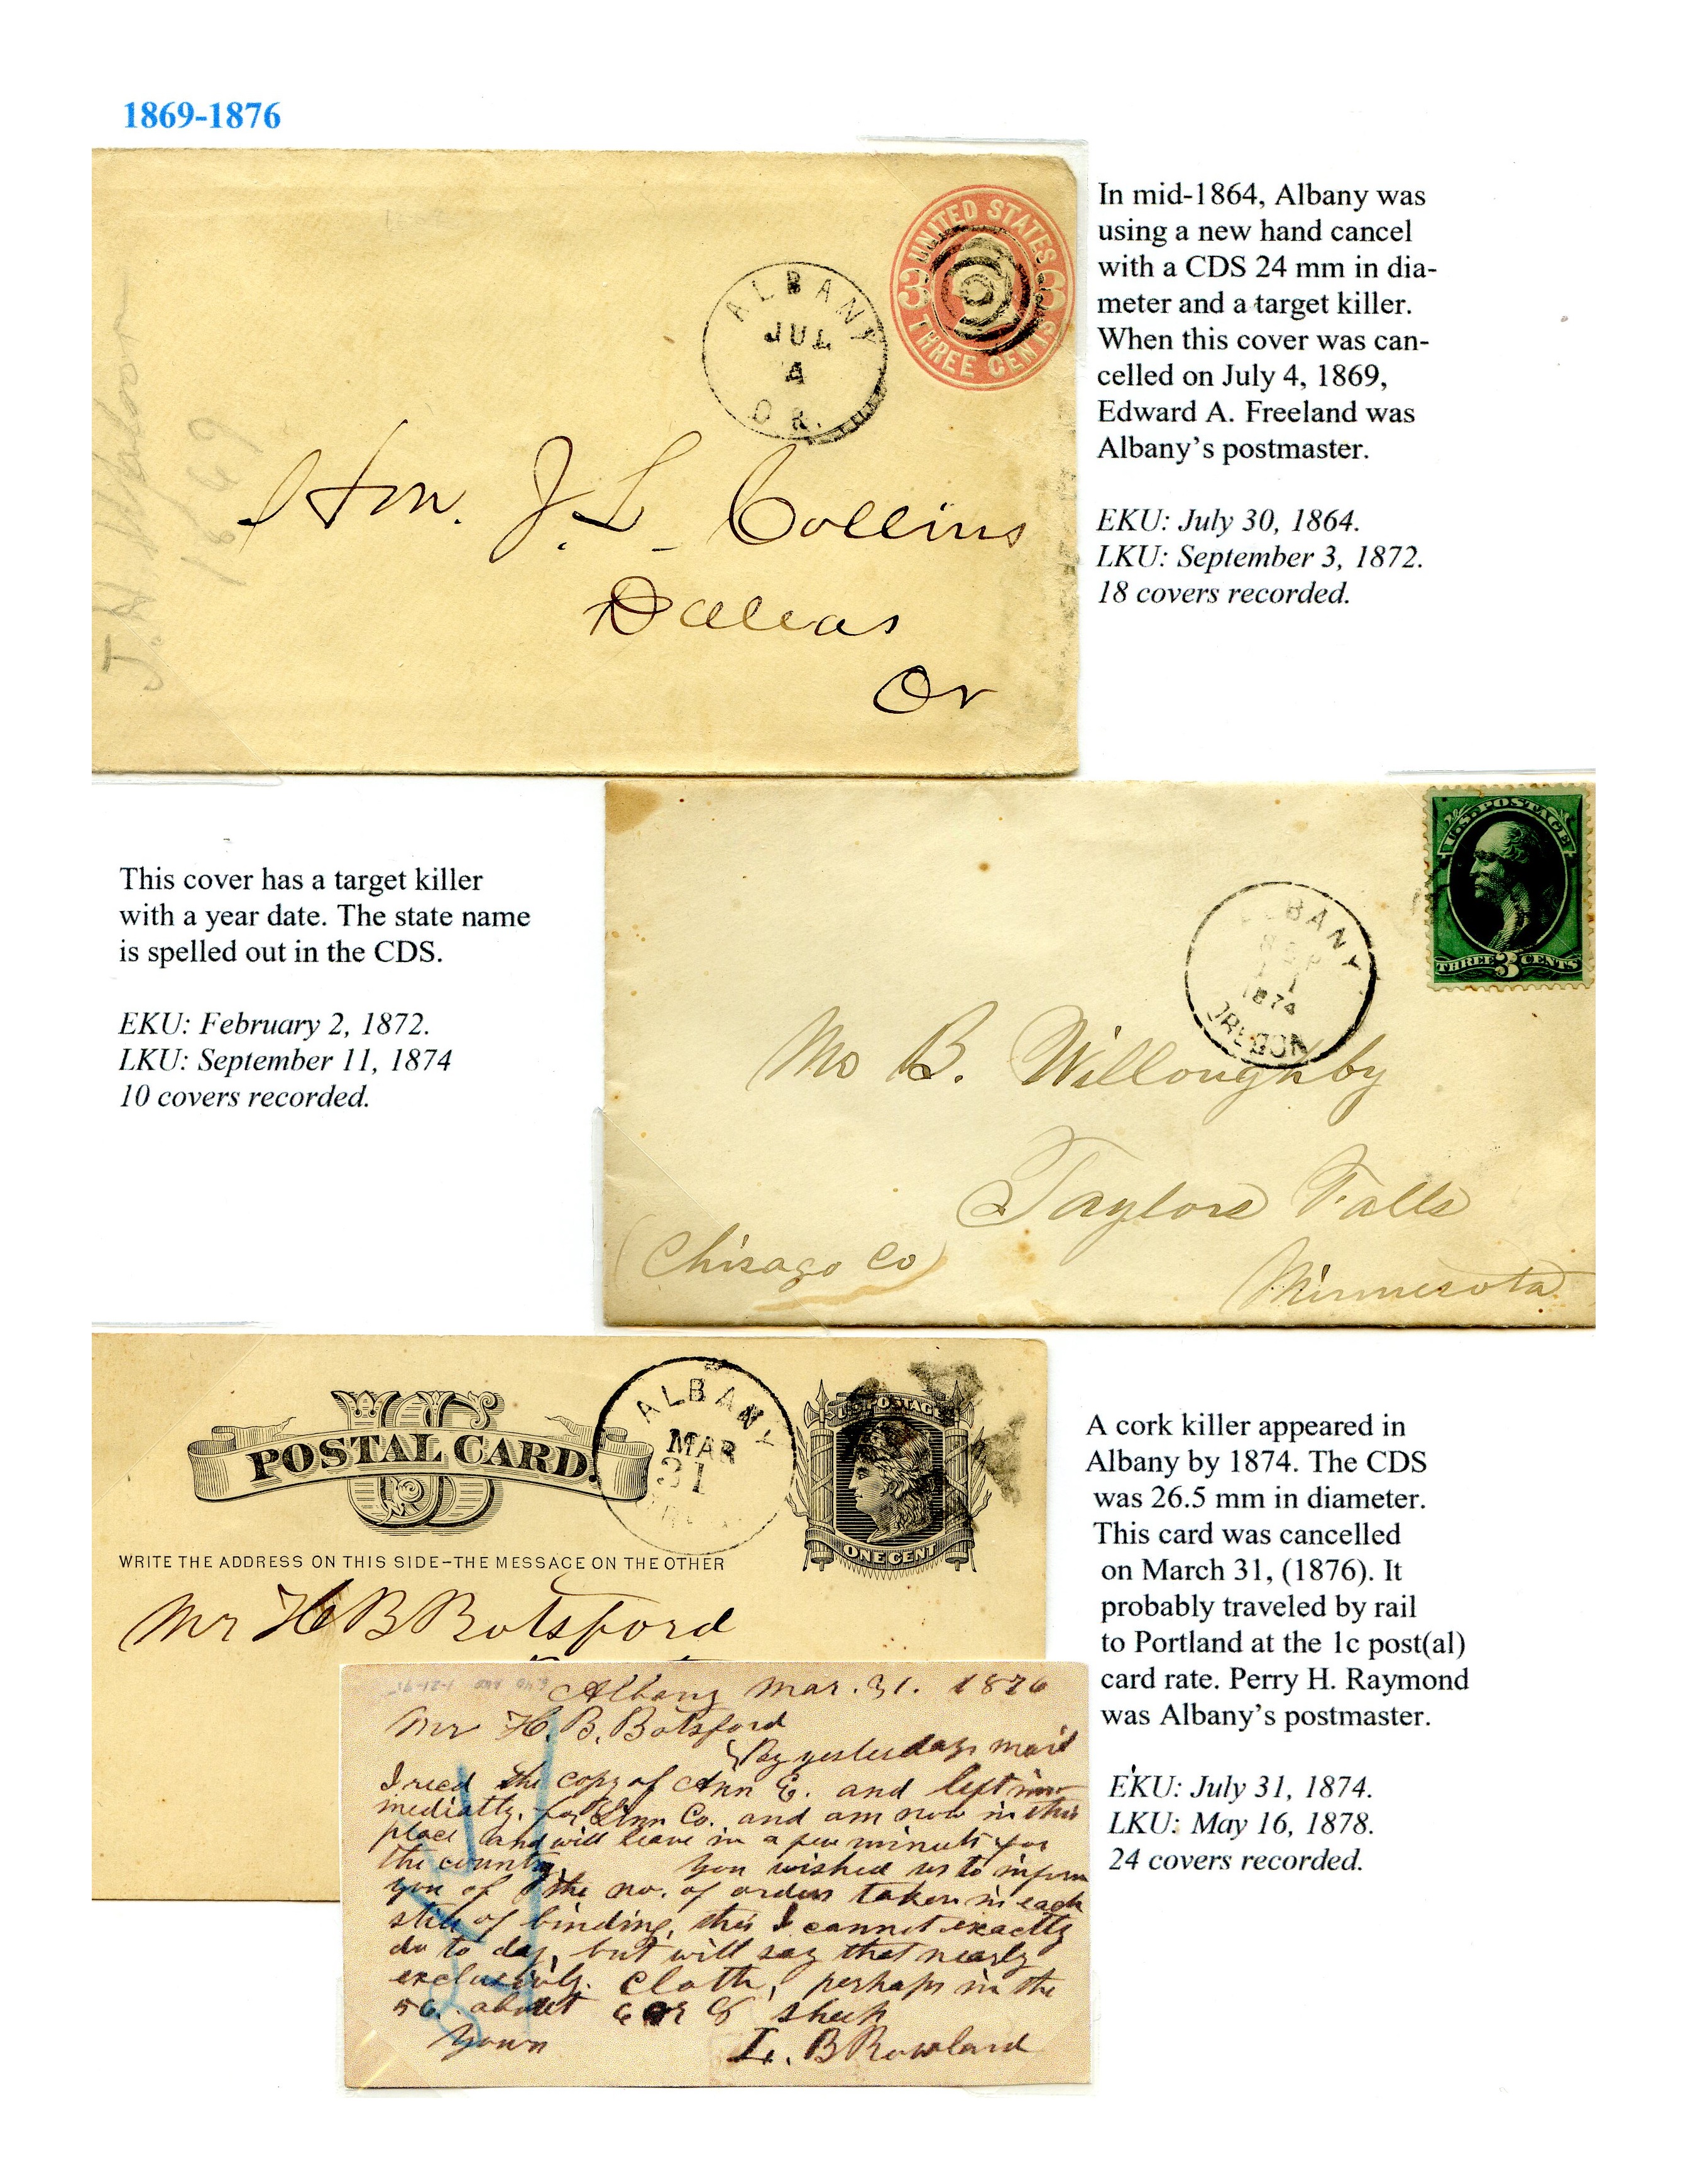 1869-1876
In mid-1864, Albany was
using a new hand cancel
with a CDS 24 mm in dia-
meter and a target killer.
When this cover was can-
celled on July 4, 1869,
Edward A. Freeland was
Albany's postmaster.
EKU: July 30, 1864.
LKU: September 3, 1872.
18 covers recorded.
UNITED STATES
3 3
THREE CENTS
ALBANY
JUL
4
OR.
1869
Hon. J. L. Collins
Dallas
Or
This cover has a target killer
with a year date. The state name
is spelled out in the CDS.
EKU: February 2, 1872.
LKU: September 11, 1874
10 covers recorded.
U.S. POSTAGE
THREE 3 CENTS
ALBANY
SEP
11
1874
OREGON
B. Willoughby
Taylors Falls
(Chisago Co)
Minnesota
US
POSTAL CARD.
ALBANY
MAR
31
U.S. POSTAGE
ONE CENT
WRITE THE ADDRESS ON THIS SIDE-THE MESSAGE ON THE OTHER
Mr H B Botsford
A cork killer appeared in
Albany by 1874. The CDS
was 26.5 mm in diameter.
This card was cancelled
on March 31, (1876). It
probably traveled by rail
to Portland at the 1c post(al)
card rate. Perry H. Raymond
was Albany's postmaster.
EKU: July 31, 1874.
LKU: May 16, 1878.
24 covers recorded.
Albany Mar. 31. 1876
Mr H. B. Botsford
By yesterdays mail
I recd the copy of Ann E. and left im
mediatly, for Linn Co. and am now in this
place and will leave in a few minuts for
the country. You wished us to inform
you of the no. of orders taken in each
stile of binding, this I cannot exactly
do to day, but will say that nearly
exclusivly. Cloth, perhaps in the
56. about 6 or 8 sheep
Yours L. B Rowland